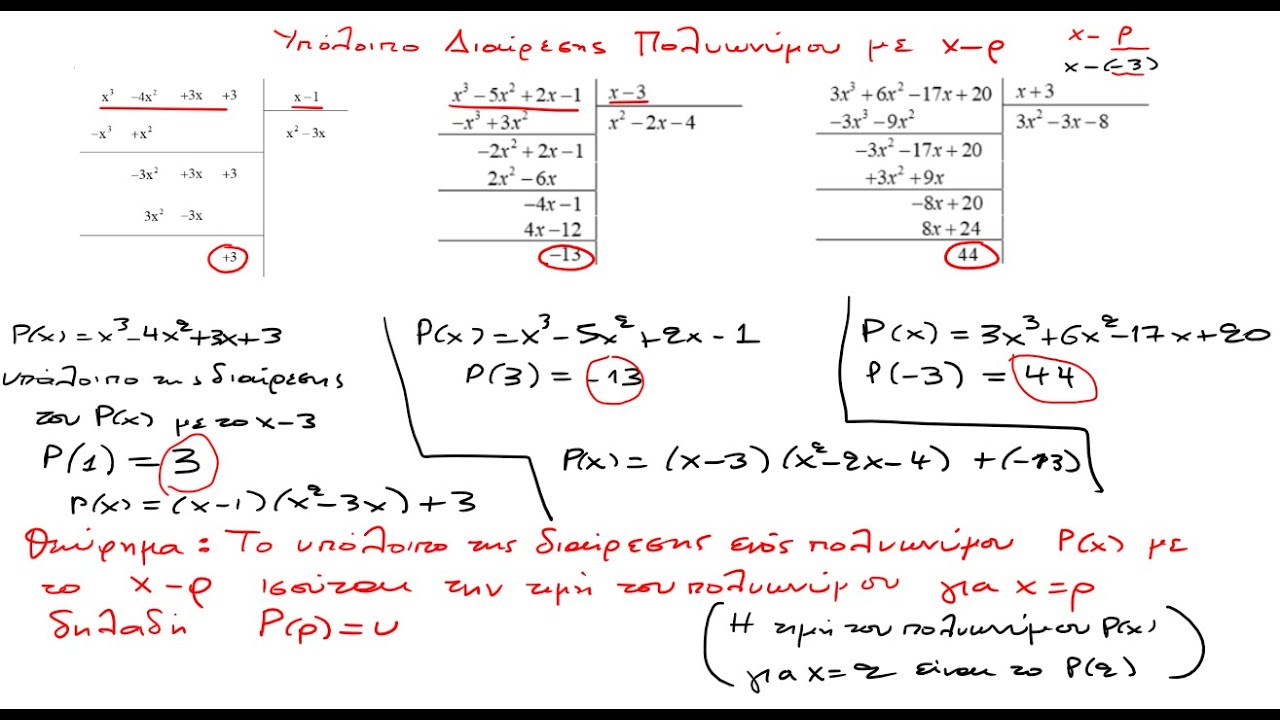 Υπόλοιπο Διαίρεσης Πολυωνύμου με x-ρ
x - ρ
x - (-3)
x³ -4x² +3x +3 x-1
-x³ +x² x² -3x
-3x² +3x +3
3x² -3x
+3
x³ -5x² +2x -1 x-3
-x³ +3x² x² -2x -4
-2x² +2x -1
2x² -6x
-4x -1
4x -12
-13
3x³ +6x² -17x +20 x+3
-3x³ -9x² 3x² -3x -8
-3x² -17x +20
+3x² +9x
-8x +20
8x +24
44
P(x) = x³-4x²+3x+3
υπόλοιπο της διαίρεσης
του P(x) με το x-3
P(1) = 3
P(x) = (x-1)(x²-3x)+3
P(x) = x³-5x²+2x-1
P(3) = -13
P(x) = (x-3)(x²-2x-4) +(-13)
P(x) = 3x³+6x²-17x+20
P(-3) = 44
Θεώρημα: Το υπόλοιπο της διαίρεσης ενός πολυωνύμου P(x) με
το x-ρ ισούται την τιμή του πολυωνύμου για x=ρ
δηλαδή P(ρ)=υ
(Η τιμή του πολυωνύμου P(x)
για x=2 είναι το P(2))